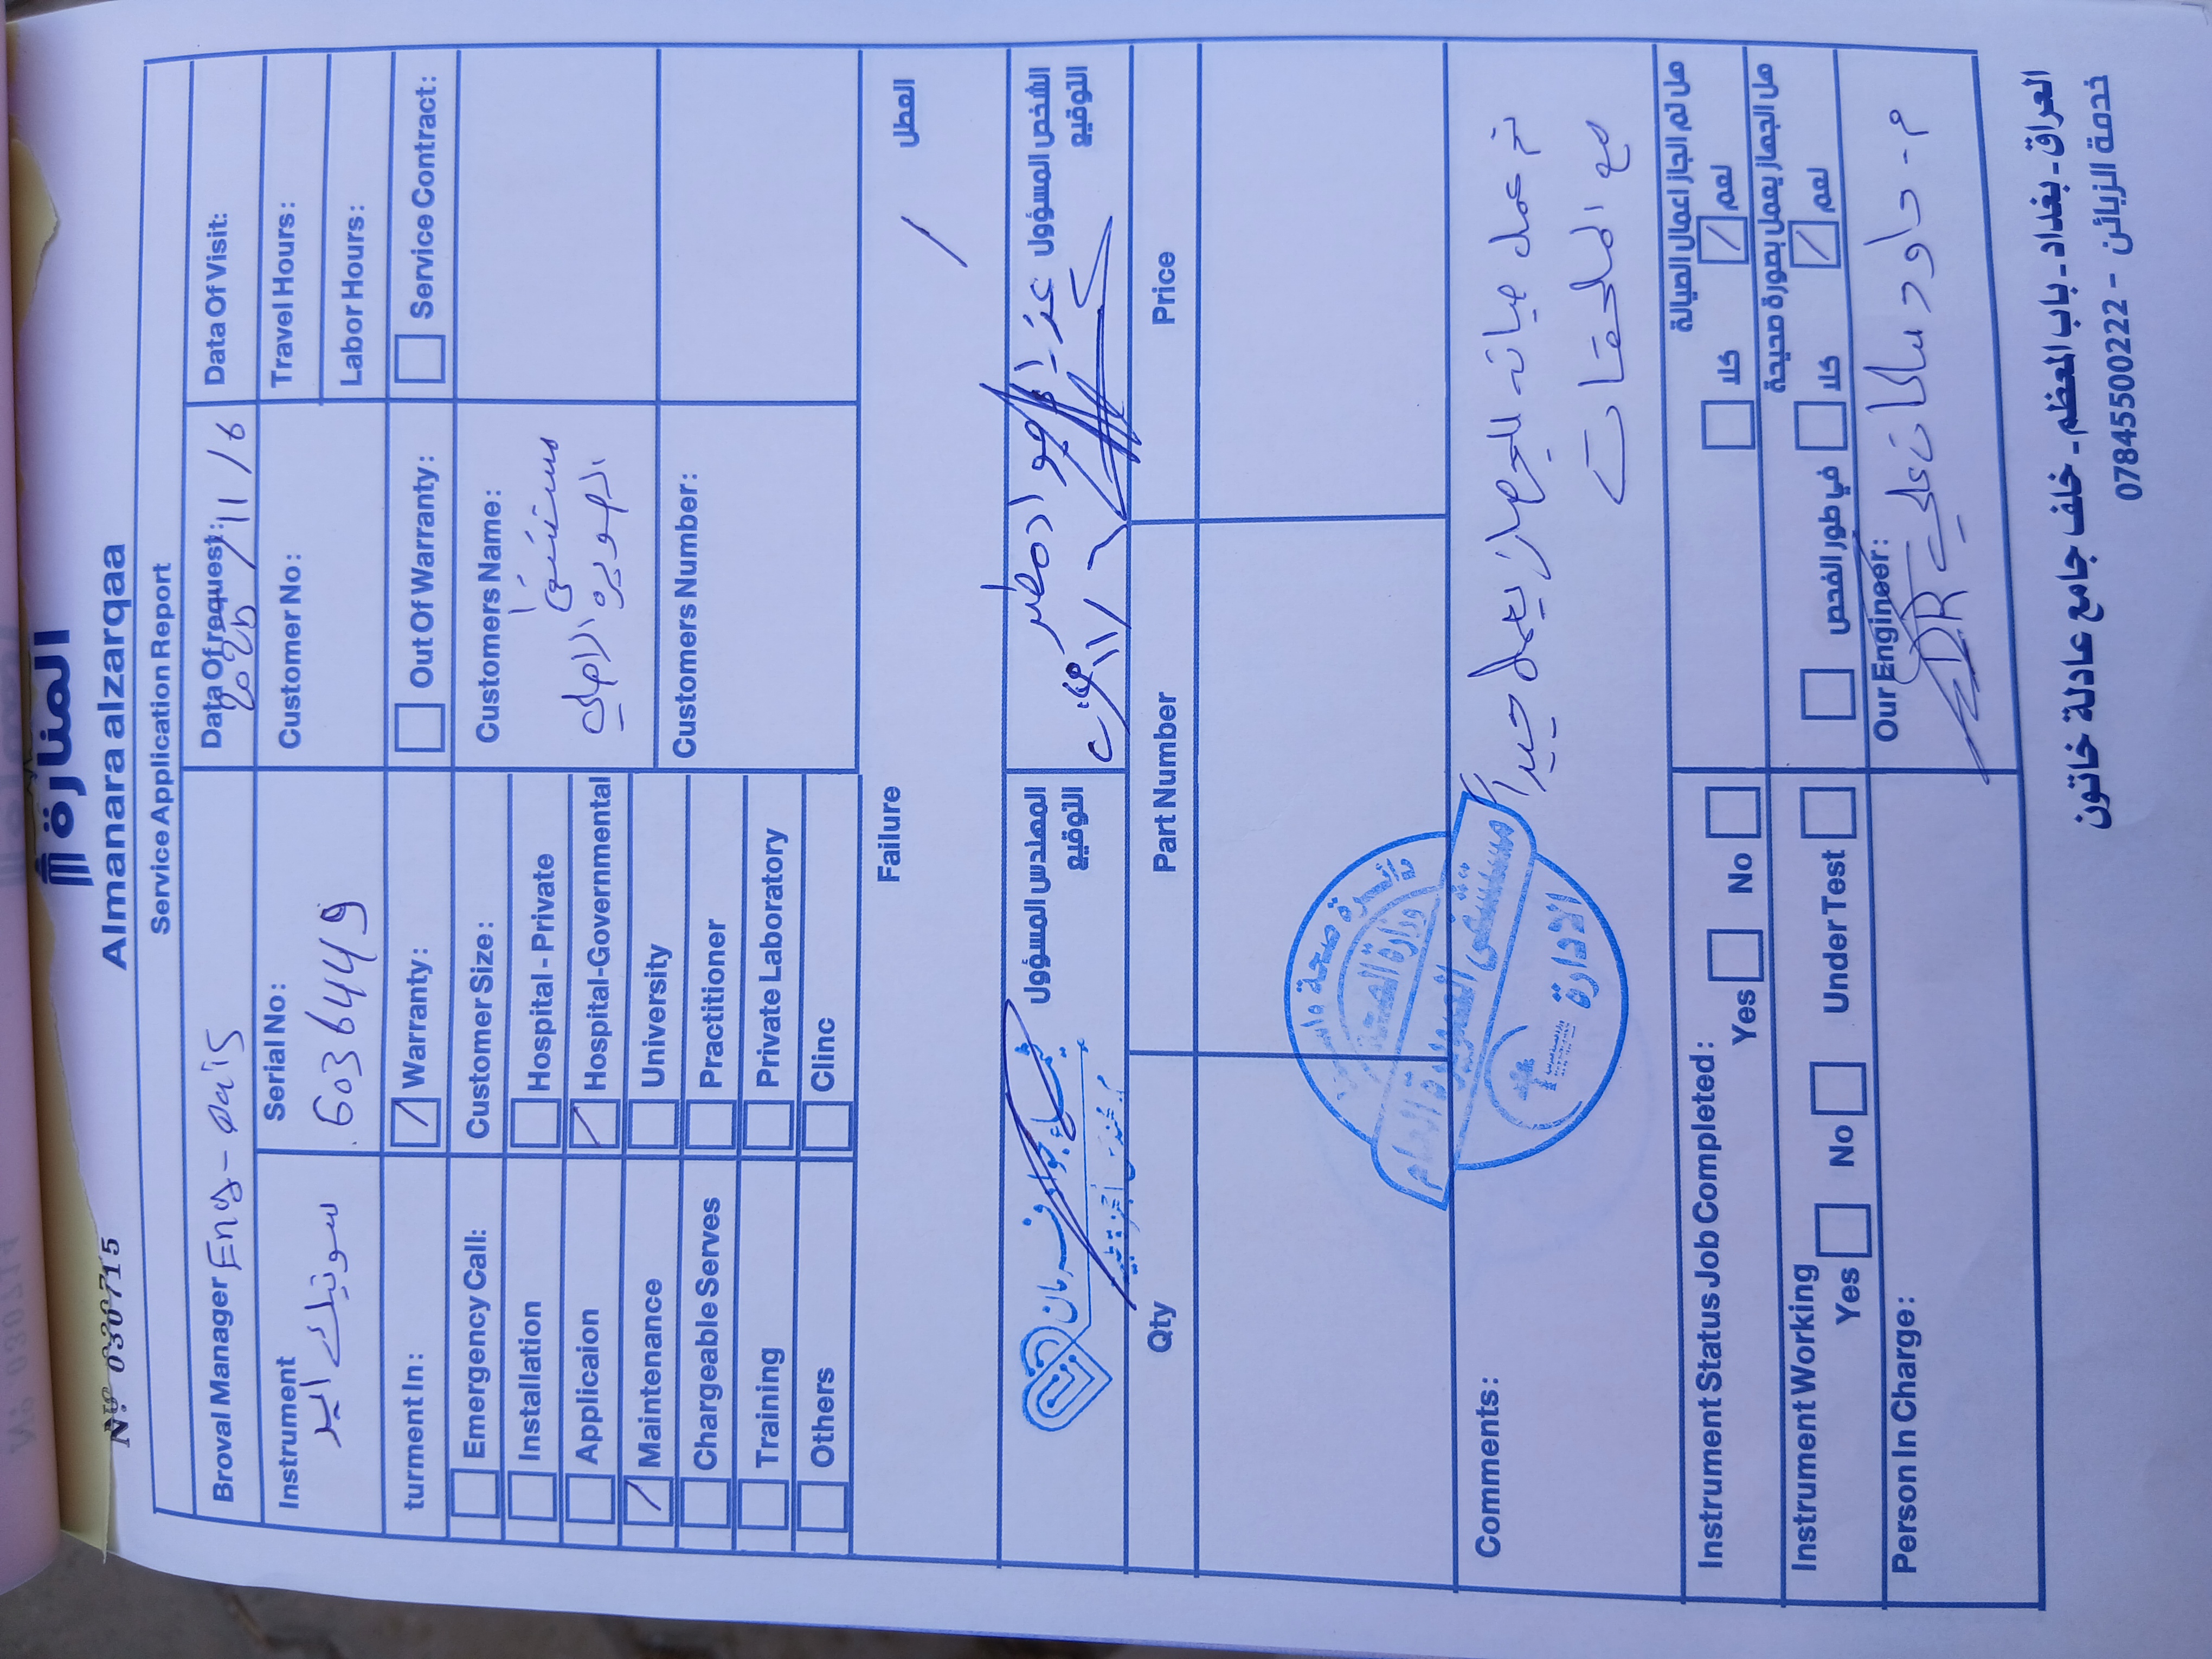 المنارة
Almanara alzarqaa
Nº 030715
Service Application Report
Broval Manager Eng - Qais
Data Of request: 2025/11/6
Data Of Visit:
Instrument سونيك ايد
Serial No: 6036449
Customer No:
Travel Hours:
Labor Hours:
turment In:
Warranty:
Out Of Warranty:
Service Contract:
Emergency Call:
Customer Size:
Customers Name:
مستشفى
الصويرة الاهلي
Installation
Hospital - Private
Applicaion
Hospital-Governmental
Maintenance
University
Customers Number:
Chargeable Serves
Practitioner
Training
Private Laboratory
Others
Clinc
Failure
العطل
/
المهندس المسؤول
التوقيع
الشخص المسؤول
التوقيع
جواد مطر
Qty
Part Number
Price
وزارة الصحة
مستشفى الصويرة العام
الادارة
Comments:
تم عمل صيانه للجهاز يعمل جيداً
مع الملحقات
Instrument Status Job Completed:
Yes
No
هل تم انجاز اعمال الصيانة
نعم
كلا
Instrument Working
Yes
No
Under Test
هل الجهاز يعمل بصورة صحيحة
نعم
كلا
في طور الفحص
Person In Charge:
Our Engineer:
م - داود سلمان علي
العراق - بغداد - باب المعظم - خلف جامع عادلة خاتون
خدمة الزبائن - 07845500222